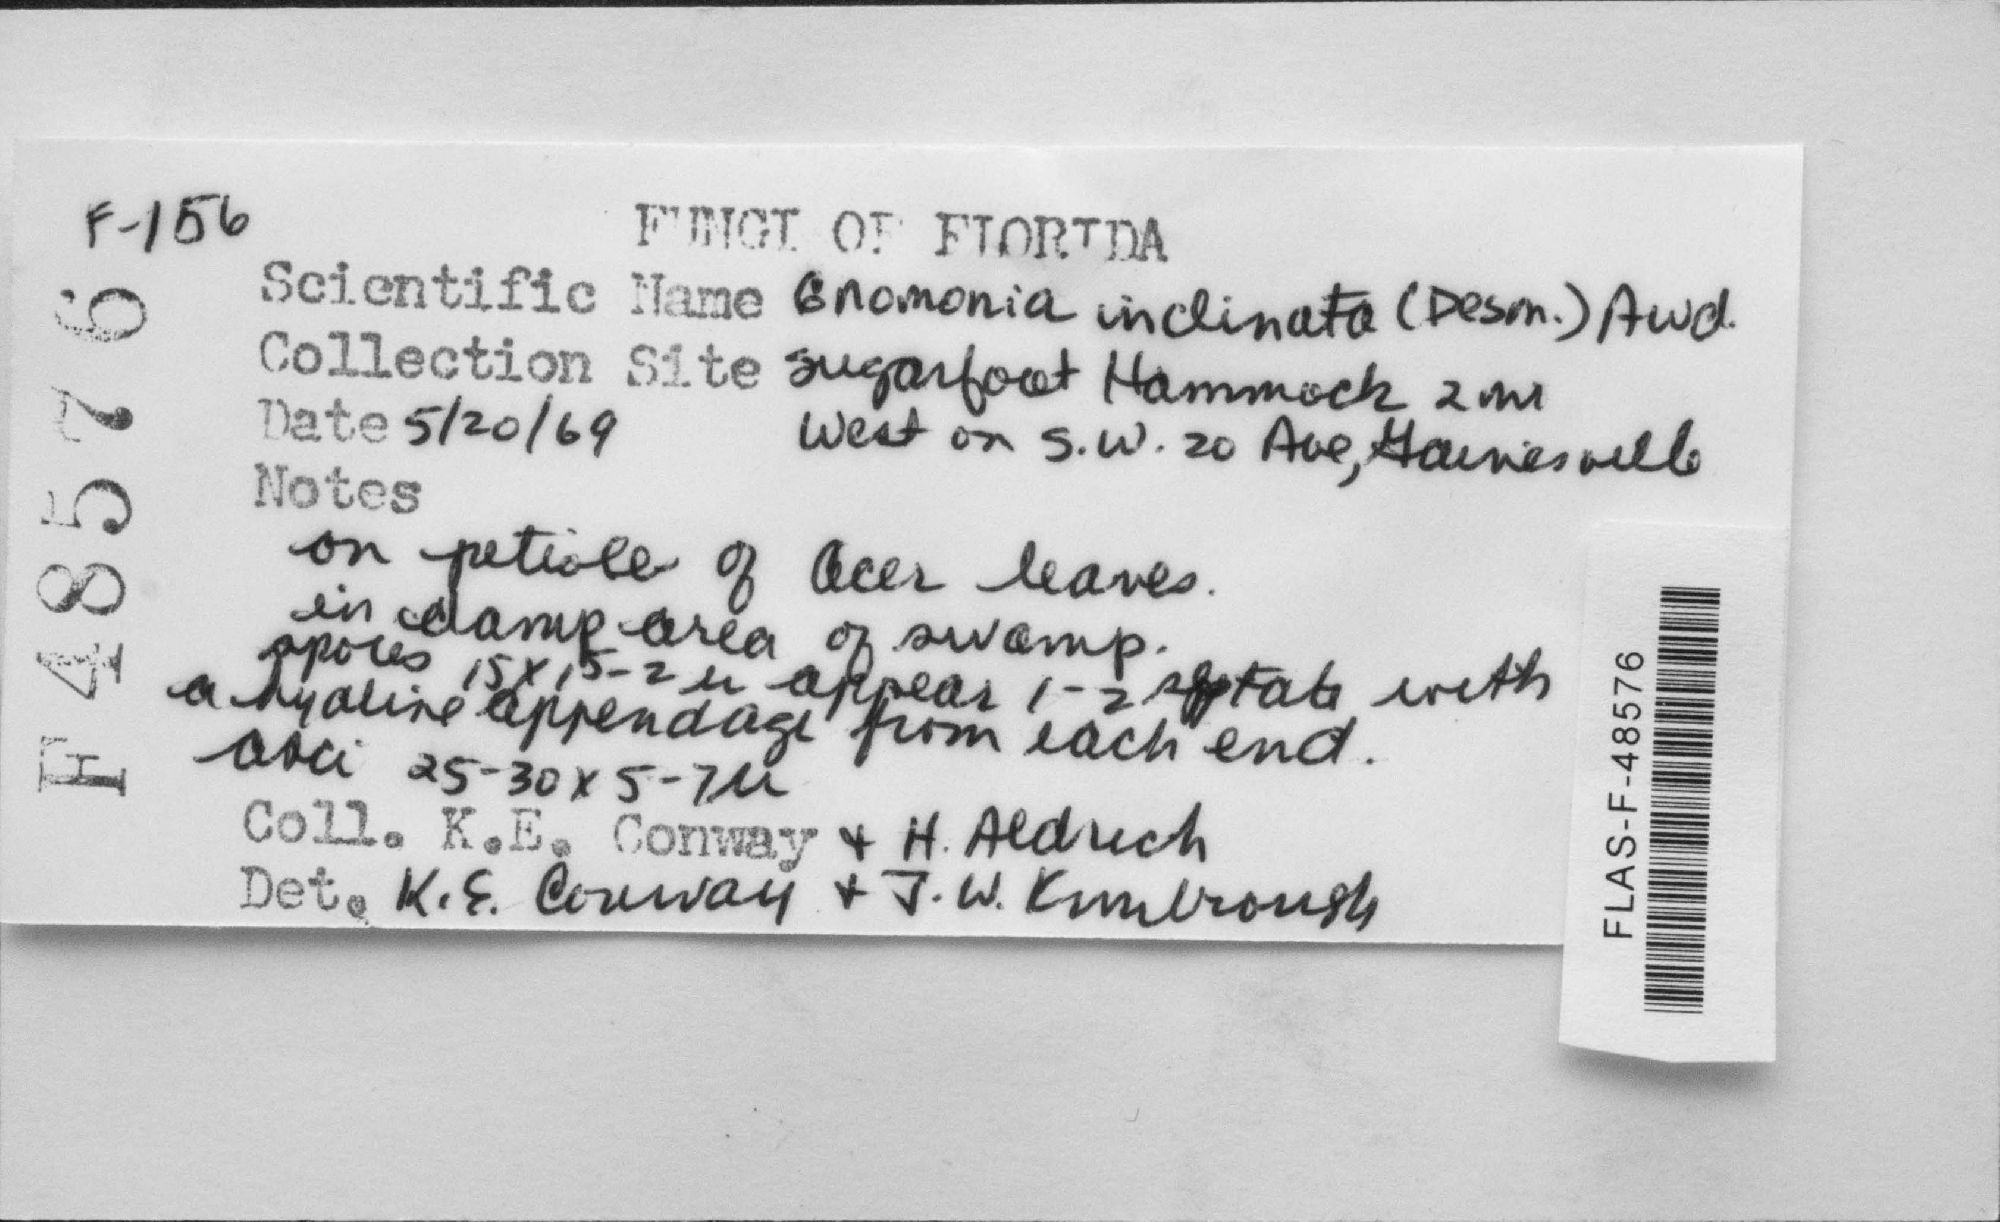 F-156
FUNGI OF FLORIDA
Scientific Name Gnomonia inclinata (Desm.) Awd.
Collection Site Sugarfoot Hammock 2 mi
Date 5/20/69 West on S.W. 20 Ave, Gainesville
Notes
on petiole of Acer leaves.
in damp area of swamp.
spores 15 x 1.5-2 u appear 1-2 septate with
a hyaline appendage from each end.
asci 25-30 x 5-7 u
Coll. K.E. Conway + H. Aldrich
Det. K.E. Conway + J.W. Kimbrough
F 48576
FLAS-F-48576